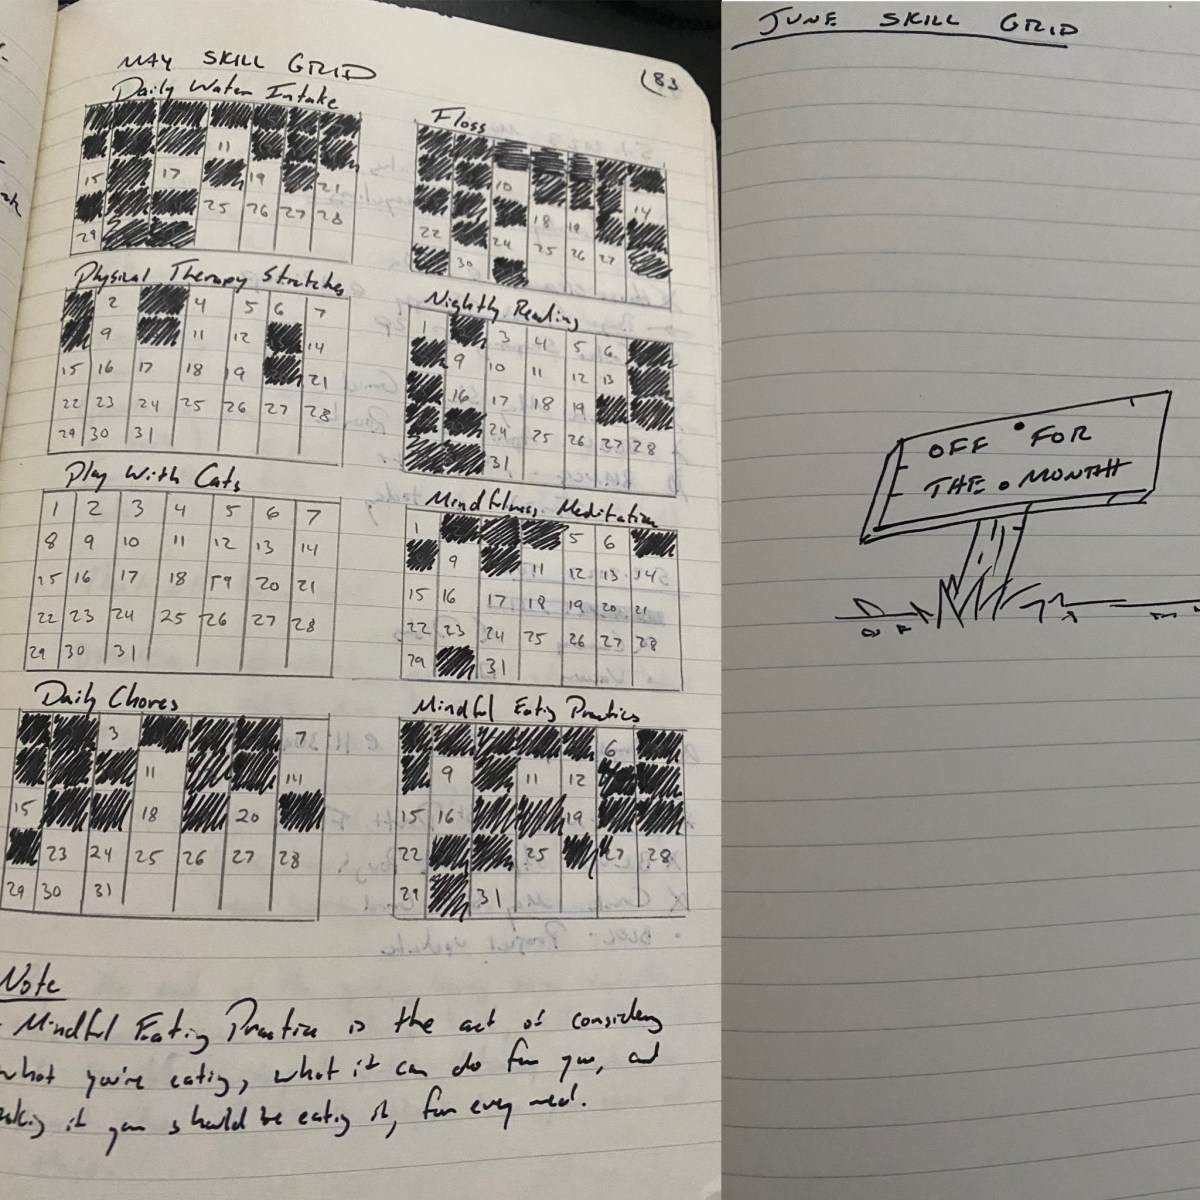 MAY SKILL GRID
83
Daily Water Intake
11
15 17 19 21
25 26 27 28
29
Physical Therapy Stretches
2 4 5 6 7
9 11 12 14
15 16 17 18 19 21
22 23 24 25 26 27 28
29 30 31
Play With Cats
1 2 3 4 5 6 7
8 9 10 11 12 13 14
15 16 17 18 19 20 21
22 23 24 25 26 27 28
29 30 31
Daily Chores
3 7
11 14
15 18 20
23 24 25 26 27 28
29 30 31
Floss
10 14
18 19
22 24 25 26 27
30
Nightly Reading
1 3 4 5 6
9 10 11 12 13
16 17 18 19
24 25 26 27 28
31
Mindfulness Meditation
1 5 6
9 11 12 13 14
15 16 17 18 19 20 21
22 23 24 25 26 27 28
29 31
Mindful Eating Practice
6
9 11 12
15 16 19
22 25 27 28
29 31
Note
Mindful Eating Practice is the act of considering
what you're eating, what it can do for you, and
asking if you should be eating it, for every meal.
JUNE SKILL GRID
OFF FOR
THE MONTH